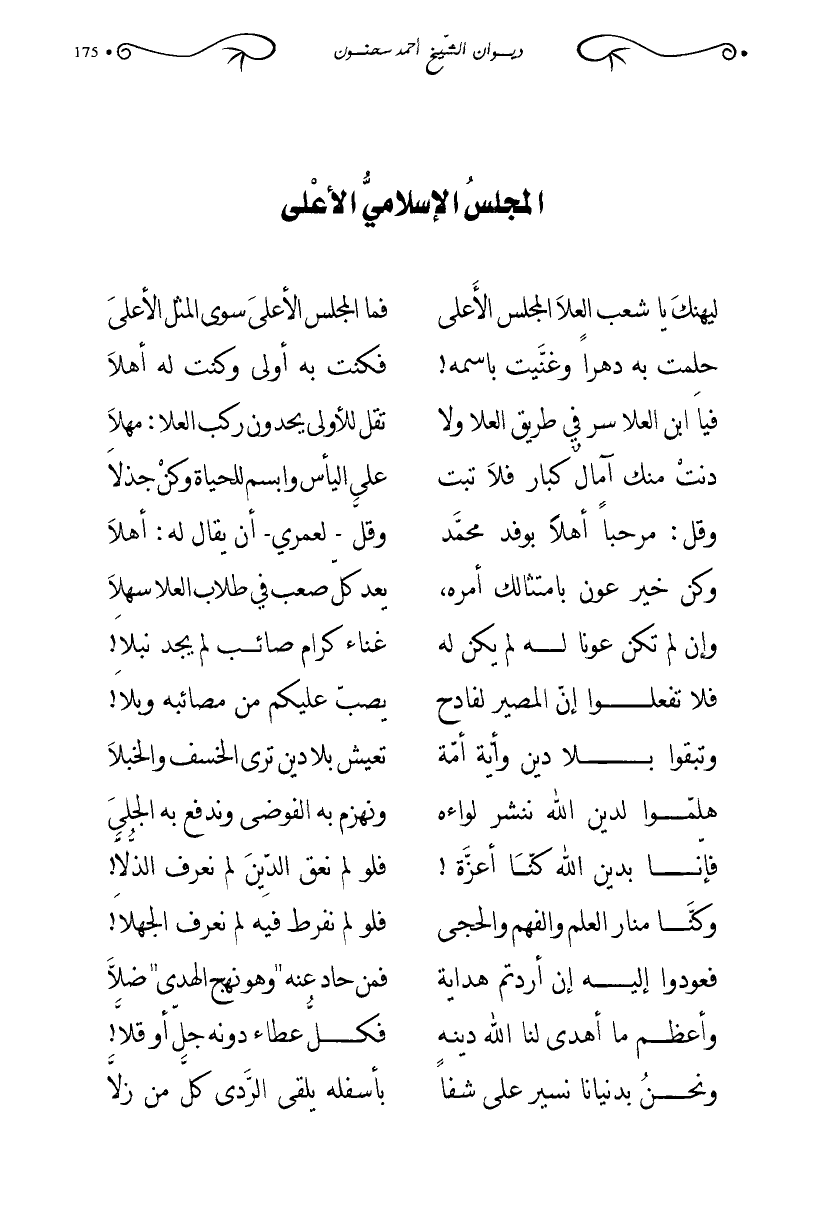 ديوان الشّيخ أحمد سحنون • 175
المجلسُ الإسلاميُّ الأعْلى
ليهنكَ يا شعب العلاَ المجلس الأَعلى فما المجلس الأعلىَ سوى المثل الأعلىَ
حلمت به دهراً وغنَّيت باسمه! فكنت به أولى وكنت له أهلاَ
فيا ابن العلا سر في طريق العلا ولا تقل للأولى يحدون ركب العلا: مهلاَ
دنتْ منك آمال كبار فلاَ تبت على اليأس وابسم للحياة وكنْ جذلاَ
وقل: مرحباً أهلاً بوفد محمَّد وقل - لعمري- أن يقال له: أهلاَ
وكن خير عون بامتثالك أمره، يعد كلّ صعب في طلاب العلا سهلاَ
وإن لم تكن عونا لـه لم يكن له غناء كرام صائب لم يجد نبلاَ!
فلا تفعلوا إنّ المصير لفادح يصبّ عليكم من مصائبه وبلا!
وتبقوا بلا دين وأية أمّة تعيش بلا دين ترى الخسف والخبلاَ
هلمّوا لدين الله ننشر لواءه ونهزم به الفوضى وندفع به الجلىَّ
فإنّا بدين الله كنَّا أعزَّة ! فلو لم نعق الدّينَ لم نعرف الذلاَّ!
وكنَّا منار العلم والفهم والحجى فلو لم نفرط فيه لم نعرف الجهلاَ!
فعودوا إليه إن أردتم هداية فمن حاد عنه "وهو نهج الهدى" ضلاَّ
وأعظم ما أهدى لنا الله دينه فكلّ عطاء دونه جلّ أو قلاَّ!
ونحنُ بدنيانا نسير على شفاً بأسفله يلقى الرَّدى كلّ من زلاَّ